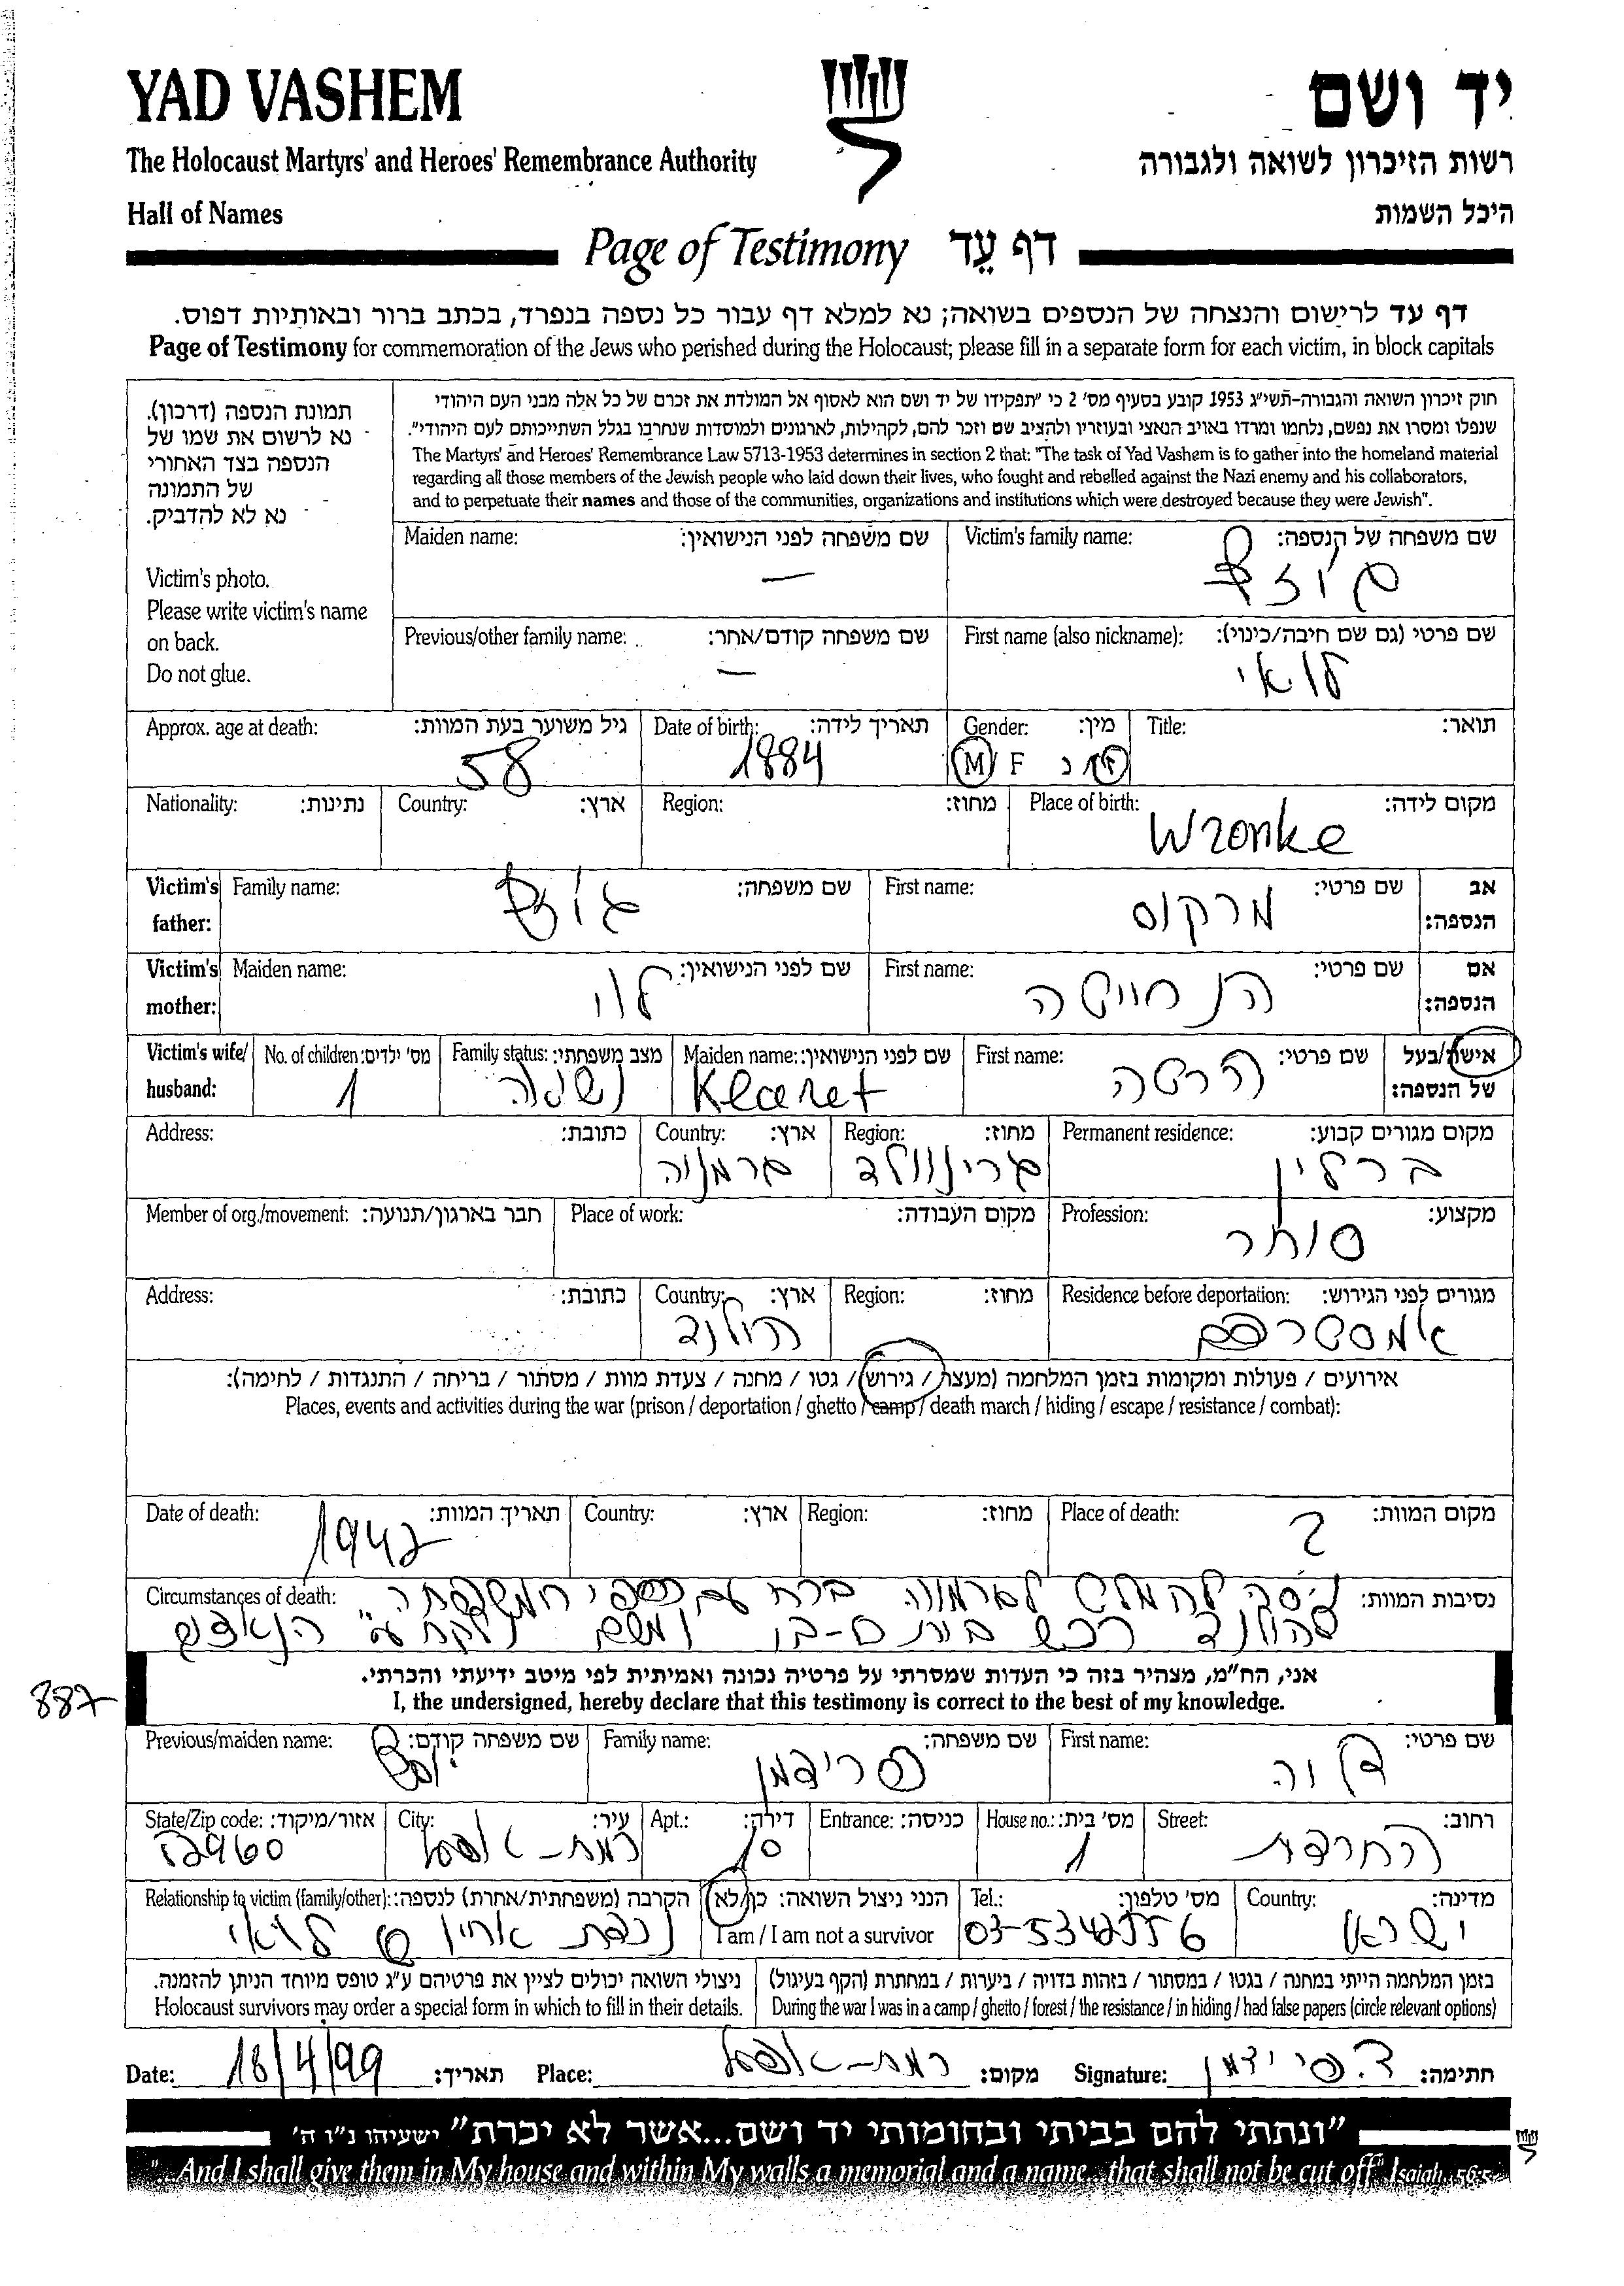 YAD VASHEM
יד ושם
The Holocaust Martyrs' and Heroes' Remembrance Authority
רשות הזיכרון לשואה ולגבורה
Hall of Names
היכל השמות
Page of Testimony דף עֵד
דף עד לרישום והנצחה של הנספים בשואה; נא למלא דף עבור כל נספה בנפרד, בכתב ברור ובאותיות דפוס.
Page of Testimony for commemoration of the Jews who perished during the Holocaust; please fill in a separate form for each victim, in block capitals
תמונת הנספה (דרכון).
נא לרשום את שמו של
הנספה בצד האחורי
של התמונה
נא לא להדביק.
Victim's photo.
Please write victim's name
on back.
Do not glue.
חוק זיכרון השואה והגבורה-תשי"ג 1953 קובע בסעיף מס' 2 כי "תפקידו של יד ושם הוא לאסוף אל המולדת את זכרם של כל אלה מבני העם היהודי
שנפלו ומסרו את נפשם, נלחמו ומרדו באויב הנאצי ובעוזריו ולהציב שם וזכר להם, לקהילות, לארגונים ולמוסדות שנחרבו בגלל השתייכותם לעם היהודי".
The Martyrs' and Heroes' Remembrance Law 5713-1953 determines in section 2 that: "The task of Yad Vashem is to gather into the homeland material
regarding all those members of the Jewish people who laid down their lives, who fought and rebelled against the Nazi enemy and his collaborators,
and to perpetuate their names and those of the communities, organizations and institutions which were destroyed because they were Jewish".
Maiden name: שם משפחה לפני הנישואין: Victim's family name: שם משפחה של הנספה:
—
Previous/other family name: שם משפחה קודם/אחר: First name (also nickname): שם פרטי (גם שם חיבה/כינוי):
— לואי
Approx. age at death: גיל משוער בעת המוות: Date of birth: תאריך לידה: Gender: מין: Title: תואר:
58 1884 M F ז/נ
Nationality: נתינות: Country: ארץ: Region: מחוז: Place of birth: מקום לידה:
Wronke
Victim's father: Family name: שם משפחה: First name: שם פרטי: אב הנספה:
מרקוס
Victim's mother: Maiden name: שם לפני הנישואין: First name: שם פרטי: אם הנספה:
לוי
Victim's wife/ husband: No. of children: מס' ילדים: Family status: מצב משפחתי: Maiden name: שם לפני הנישואין: First name: שם פרטי: אישה/בעל של הנספה:
1 נשוי Klaret הרטה
Address: כתובת: Country: ארץ: Region: מחוז: Permanent residence: מקום מגורים קבוע:
גרמניה גרינוולד ברלין
Member of org./movement: חבר בארגון/תנועה: Place of work: מקום העבודה: Profession: מקצוע:
סוחר
Address: כתובת: Country: ארץ: Region: מחוז: Residence before deportation: מגורים לפני הגירוש:
הולנד אמסטרדם
אירועים / פעולות ומקומות בזמן המלחמה (מעצר / גירוש / גטו / מחנה / צעדת מוות / מסתור / בריחה / התנגדות / לחימה):
Places, events and activities during the war (prison / deportation / ghetto / camp / death march / hiding / escape / resistance / combat):
Date of death: תאריך המוות: Country: ארץ: Region: מחוז: Place of death: מקום המוות:
1942 ?
Circumstances of death: נסיבות המוות:
ניסה להמלט מגרמניה ברח עם כספי המשפחה
להולנד רכש בית שם ומשם נלקח ע"י הנאצים
887
אני, הח"מ, מצהיר בזה כי העדות שמסרתי על פרטיה נכונה ואמיתית לפי מיטב ידיעתי והכרתי.
I, the undersigned, hereby declare that this testimony is correct to the best of my knowledge.
Previous/maiden name: שם משפחה קודם: Family name: שם משפחה: First name: שם פרטי:
פרידמן
State/Zip code: אזור/מיקוד: City: עיר: Apt.: דירה: Entrance: כניסה: House no.: מס' בית: Street: רחוב:
רמת-אפעל 10 1
Relationship to victim (family/other): הקרבה (משפחתית/אחרת) לנספה: הנני ניצול השואה: כן/לא Tel.: מס' טלפון: Country: מדינה:
I am / I am not a survivor
נכדת אחיו של לואי 03-5342556 ישראל
ניצולי השואה יכולים לציין את פרטיהם ע"ג טופס מיוחד הניתן להזמנה.
Holocaust survivors may order a special form in which to fill in their details.
בזמן המלחמה הייתי במחנה / בגטו / במסתור / בזהות בדויה / ביערות / במחתרת (הקף בעיגול)
During the war I was in a camp / ghetto / forest / the resistance / in hiding / had false papers (circle relevant options)
Date: 16/4/99 תאריך: Place: רמת-אפעל מקום: Signature: ד. פרידמן חתימה:
"ונתתי להם בביתי ובחומותי יד ושם...אשר לא יכרת" ישעיהו נ"ו ה'
"...And I shall give them in My house and within My walls a memorial and a name...that shall not be cut off" Isaiah, 56:5